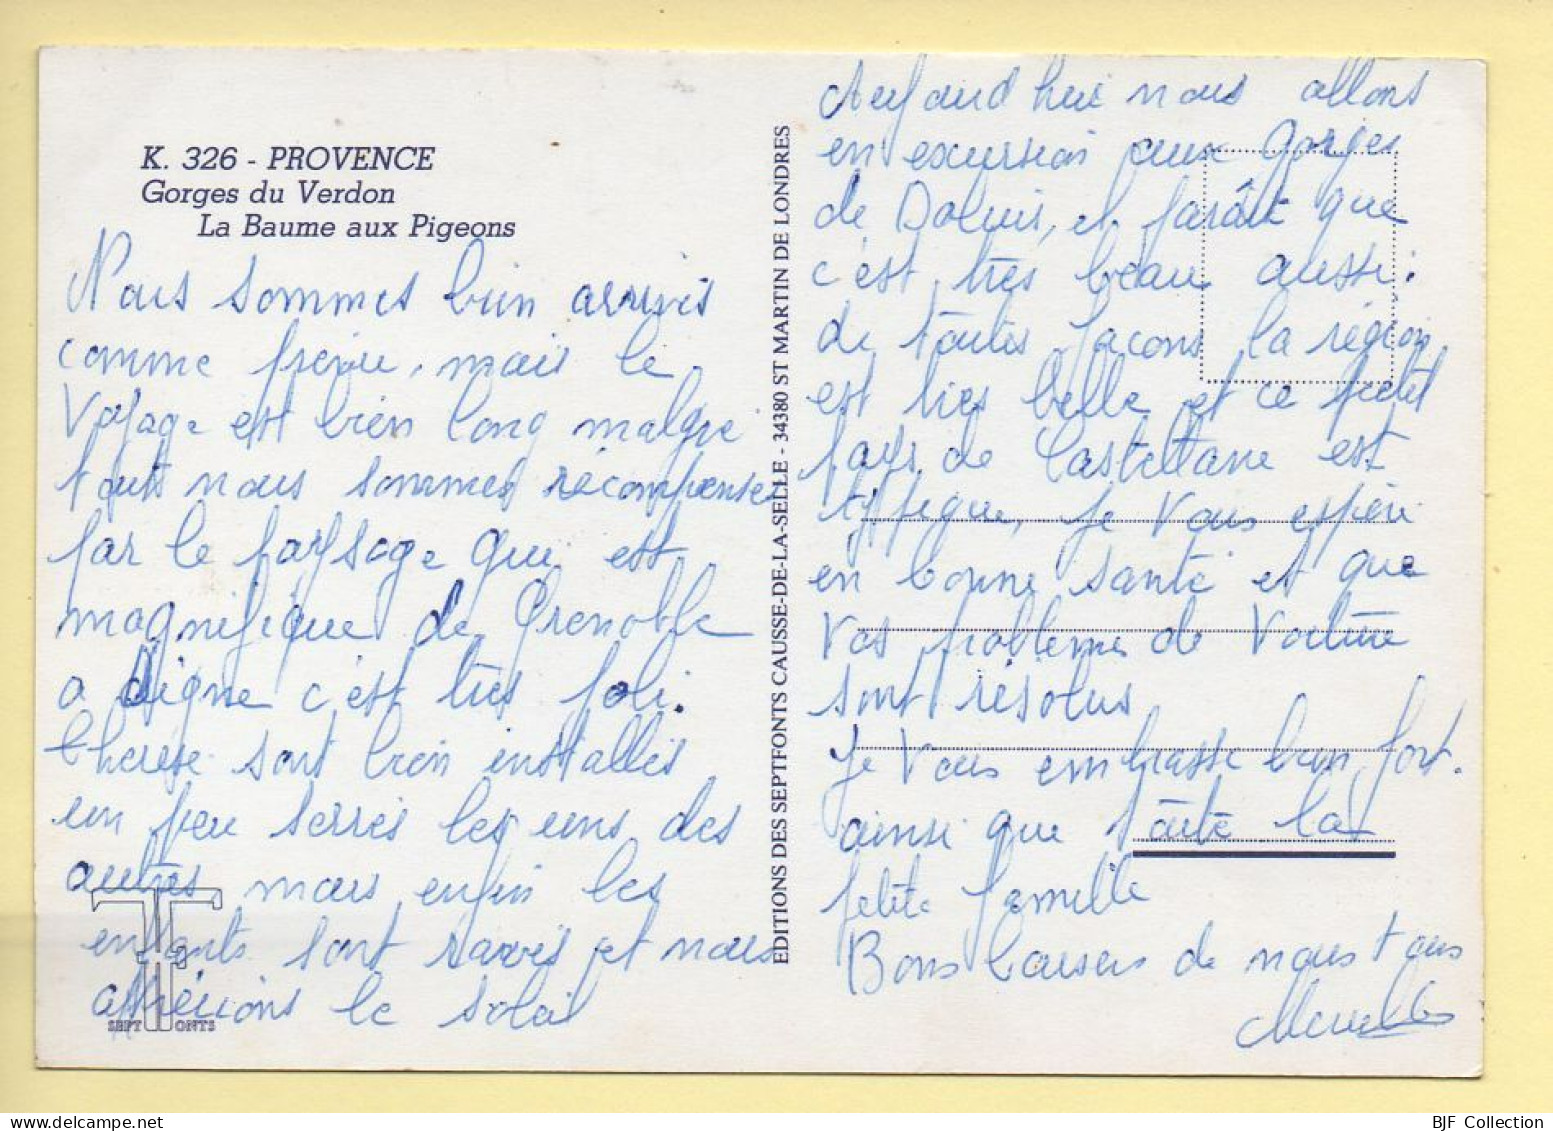 K. 326 - PROVENCE
Gorges du Verdon
La Baume aux Pigeons
Nous sommes bien arrivés
comme prévu, mais le
Voyage est bien long malgré
tout nous sommes récompensés
par le paysage qui est
magnifique de Grenoble
a digne c'est très joli.
Thérèse sont bien installés
un peu serrés les uns des
autres mais enfin les
enfants sont ravis et nous
apprécions le soleil
SEPT FONTS
EDITIONS DES SEPTFONTS CAUSSE-DE-LA-SELLE - 34380 ST MARTIN DE LONDRES
Aujourd'hui nous allons
en excursion aux Gorges
de Daluis, et parait que
c'est très beau aussi.
de toutes façons la région
est très belle et ce petit
pays de Castellane est
typique, je vous espère
en bonne santé et que
vos problèmes de voiture
sont résolus
Je vous embrasse bien fort.
ainsi que toute la
petite famille
Bons baisers de nous tous
BJF Collection